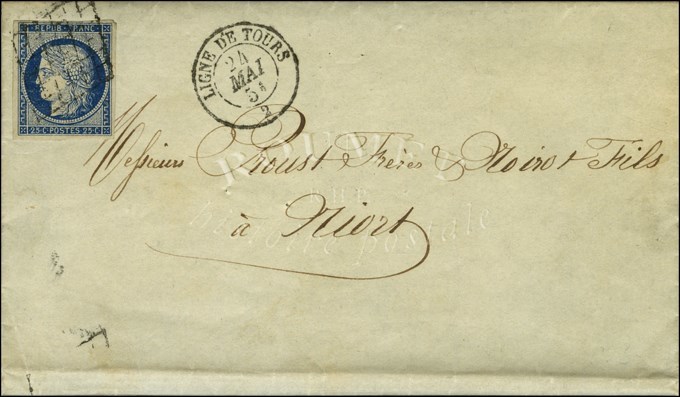 REPUB. FRANC.
25·C POSTES 25·C
LIGNE DE TOURS
24
MAI
51
2
Messieurs Proust Frères & Noirot Fils
à Niort
histoire postale